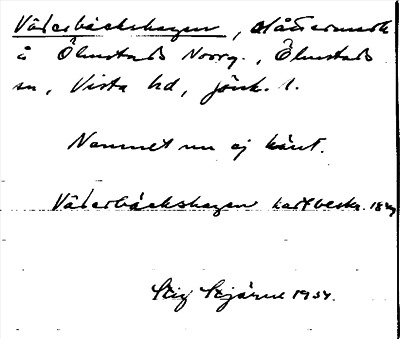 Väderbäckshagen, slåttermark
å Ölmstads Norrg., Ölmstads
sn, Vista hd, Jönk. l.
Namnet nu ej känt.
Väderbäckshagen kartbeskr. 18
Stig Stjärne 1934.